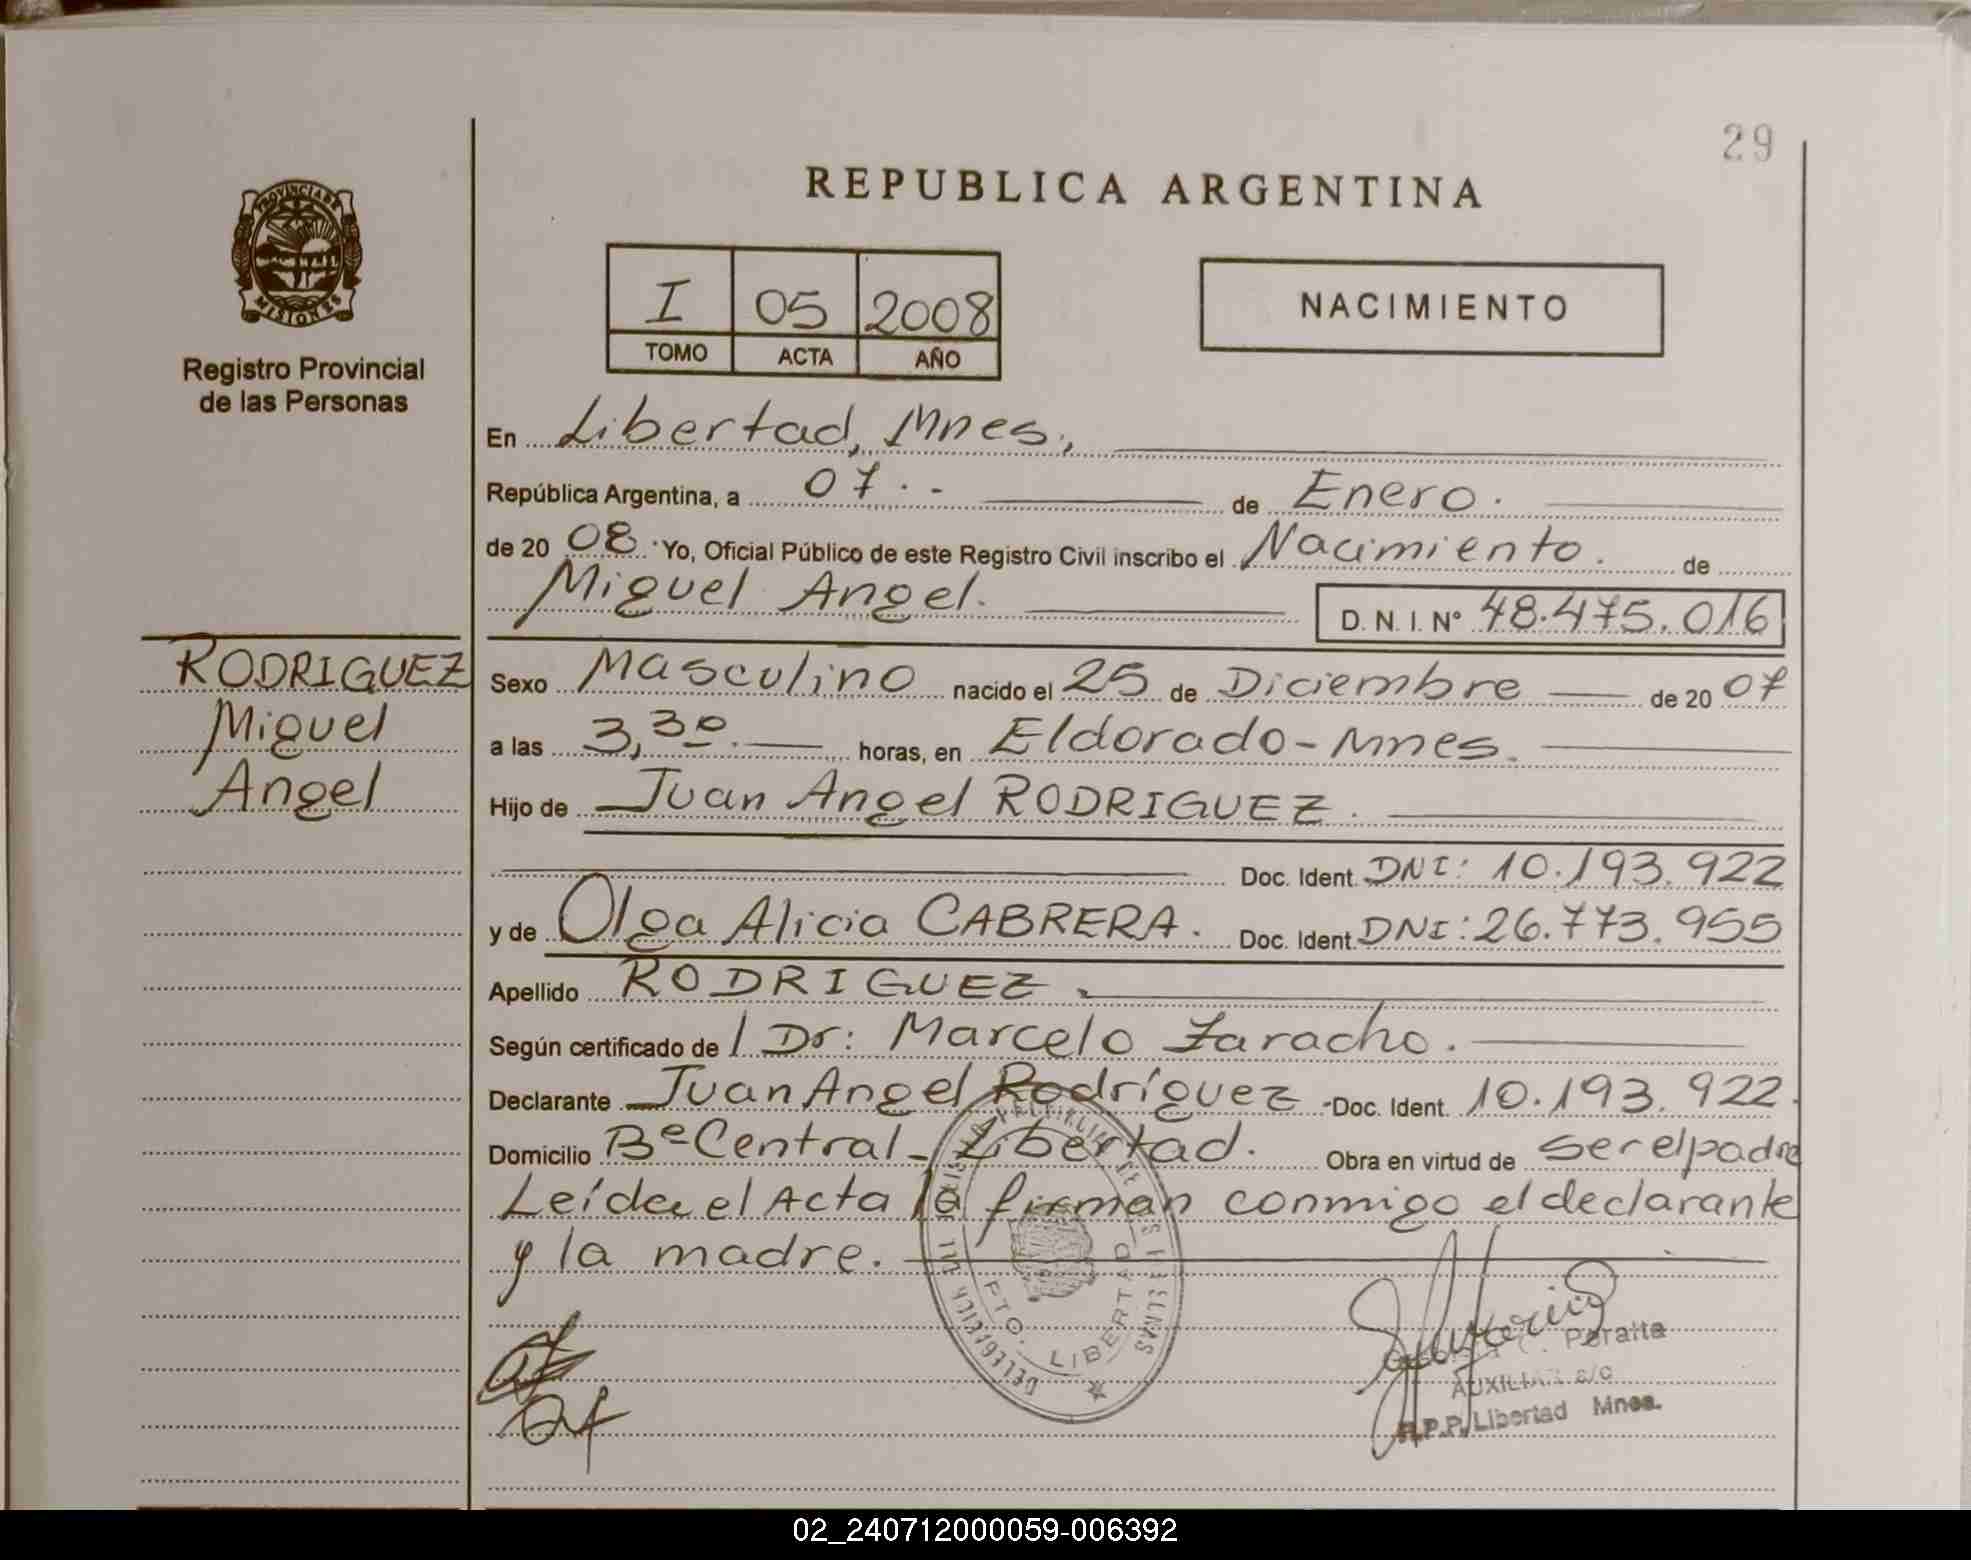 29
REPUBLICA ARGENTINA
PROVINCIA DE
MISIONES
Registro Provincial
de las Personas
I 05 2008
TOMO ACTA AÑO
NACIMIENTO
En Libertad, Mnes.,
República Argentina, a 07.- de Enero.
de 20 08. Yo, Oficial Público de este Registro Civil inscribo el Nacimiento. de
Miguel Angel. D. N. I. Nº 48.475.016
RODRIGUEZ
Miguel
Angel
Sexo Masculino nacido el 25 de Diciembre de 20 07
a las 3,30. horas, en Eldorado - Mnes.
Hijo de Juan Angel RODRIGUEZ.
Doc. Ident. DNI: 10.193.922
y de Olga Alicia CABRERA. Doc. Ident. DNI: 26.773.955
Apellido RODRIGUEZ.
Según certificado de / Dr: Marcelo Zaracho.
Declarante Juan Angel Rodríguez - Doc. Ident. 10.193.922.
Domicilio Bº Central - Libertad. Obra en virtud de ser el padre
Leída el Acta la firman conmigo el declarante
y la madre.
PTO. LIBERTAD
Peralta
AUXILIAR a/c
R.P.P. Libertad Mnes.
02_240712000059-006392